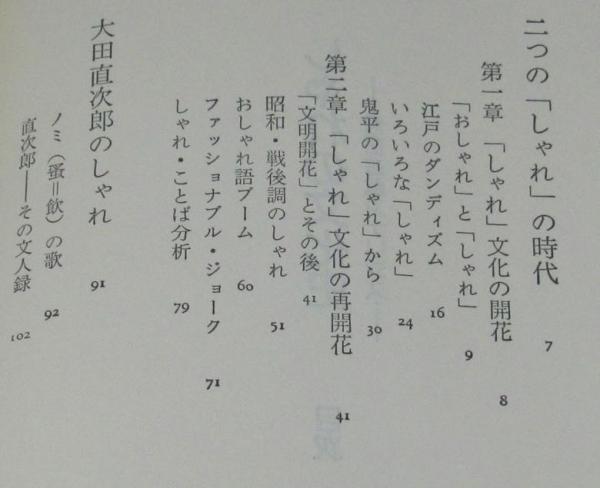 二つの「しゃれ」の時代 7
第一章 「しゃれ」文化の開花 8
「おしゃれ」と「しゃれ」 9
江戸のダンディズム 16
いろいろな「しゃれ」 24
鬼平の「しゃれ」から 30
第二章 「しゃれ」文化の再開花 41
「文明開花」とその後 41
昭和・戦後調のしゃれ 51
おしゃれ語ブーム 60
ファッショナブル・ジョーク 71
しゃれ・ことば分析 79
大田直次郎のしゃれ 91
ノミ(蚤=飲)の歌 92
直次郎――その文人録 102